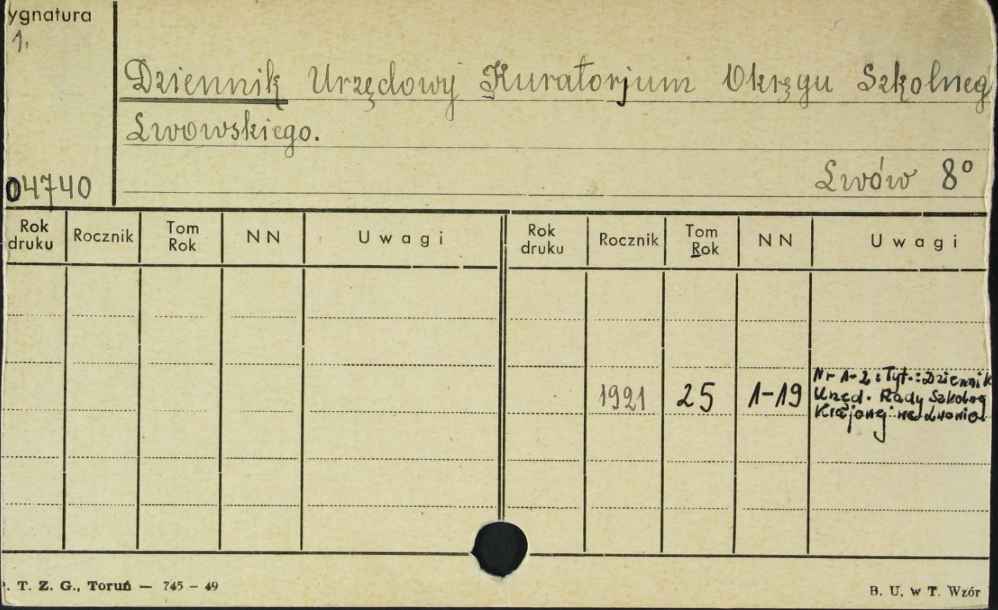 ygnatura
1.
Dziennik Urzędowy Kuratorjum Okręgu Szkolneg
Lwowskiego.
04740
Lwów 8°
Rok druku Rocznik Tom Rok NN Uwagi Rok druku Rocznik Tom Rok NN Uwagi
1921 25 1-19 Nr 1-2: Tyt.: Dziennik
Urzęd. Rady Szkolnej
Krajowej we Lwowie
. T. Z. G., Toruń — 745 - 49
B. U. w T. Wzór